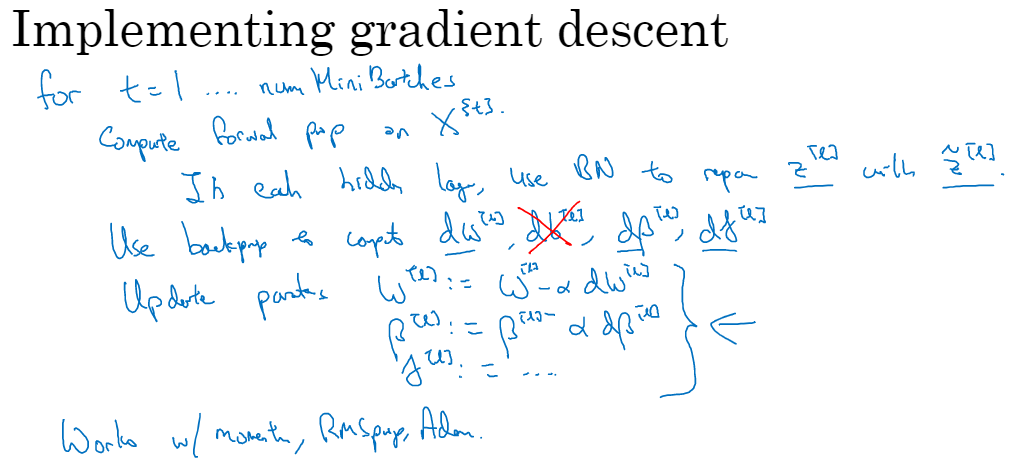 Implementing gradient descent
for t = 1 .... num Mini Batches
Compute forwal pop on X^{t}.
In eah hidden lay, use BN to repa z^[l] with z̃^[l].
Use backprop to compt dw^[l], db^[l], dβ^[l], dγ^[l]
Update w^[l] := w^[l] - α dw^[l]
β^[l] := β^[l] - α dβ^[l]
γ^[l] := ....
Works w/ moment, RMSprop, Adam.